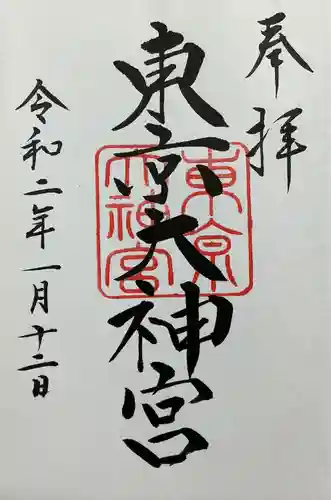 奉拝
東京大神宮
東京大神宮
令和二年一月十二日